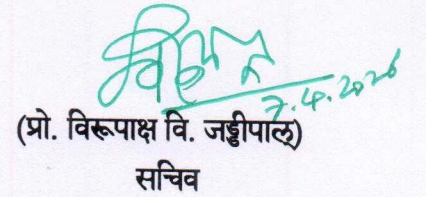 7.4.2026
(प्रो. विरूपाक्ष वि. जड्डीपाल्)
सचिव